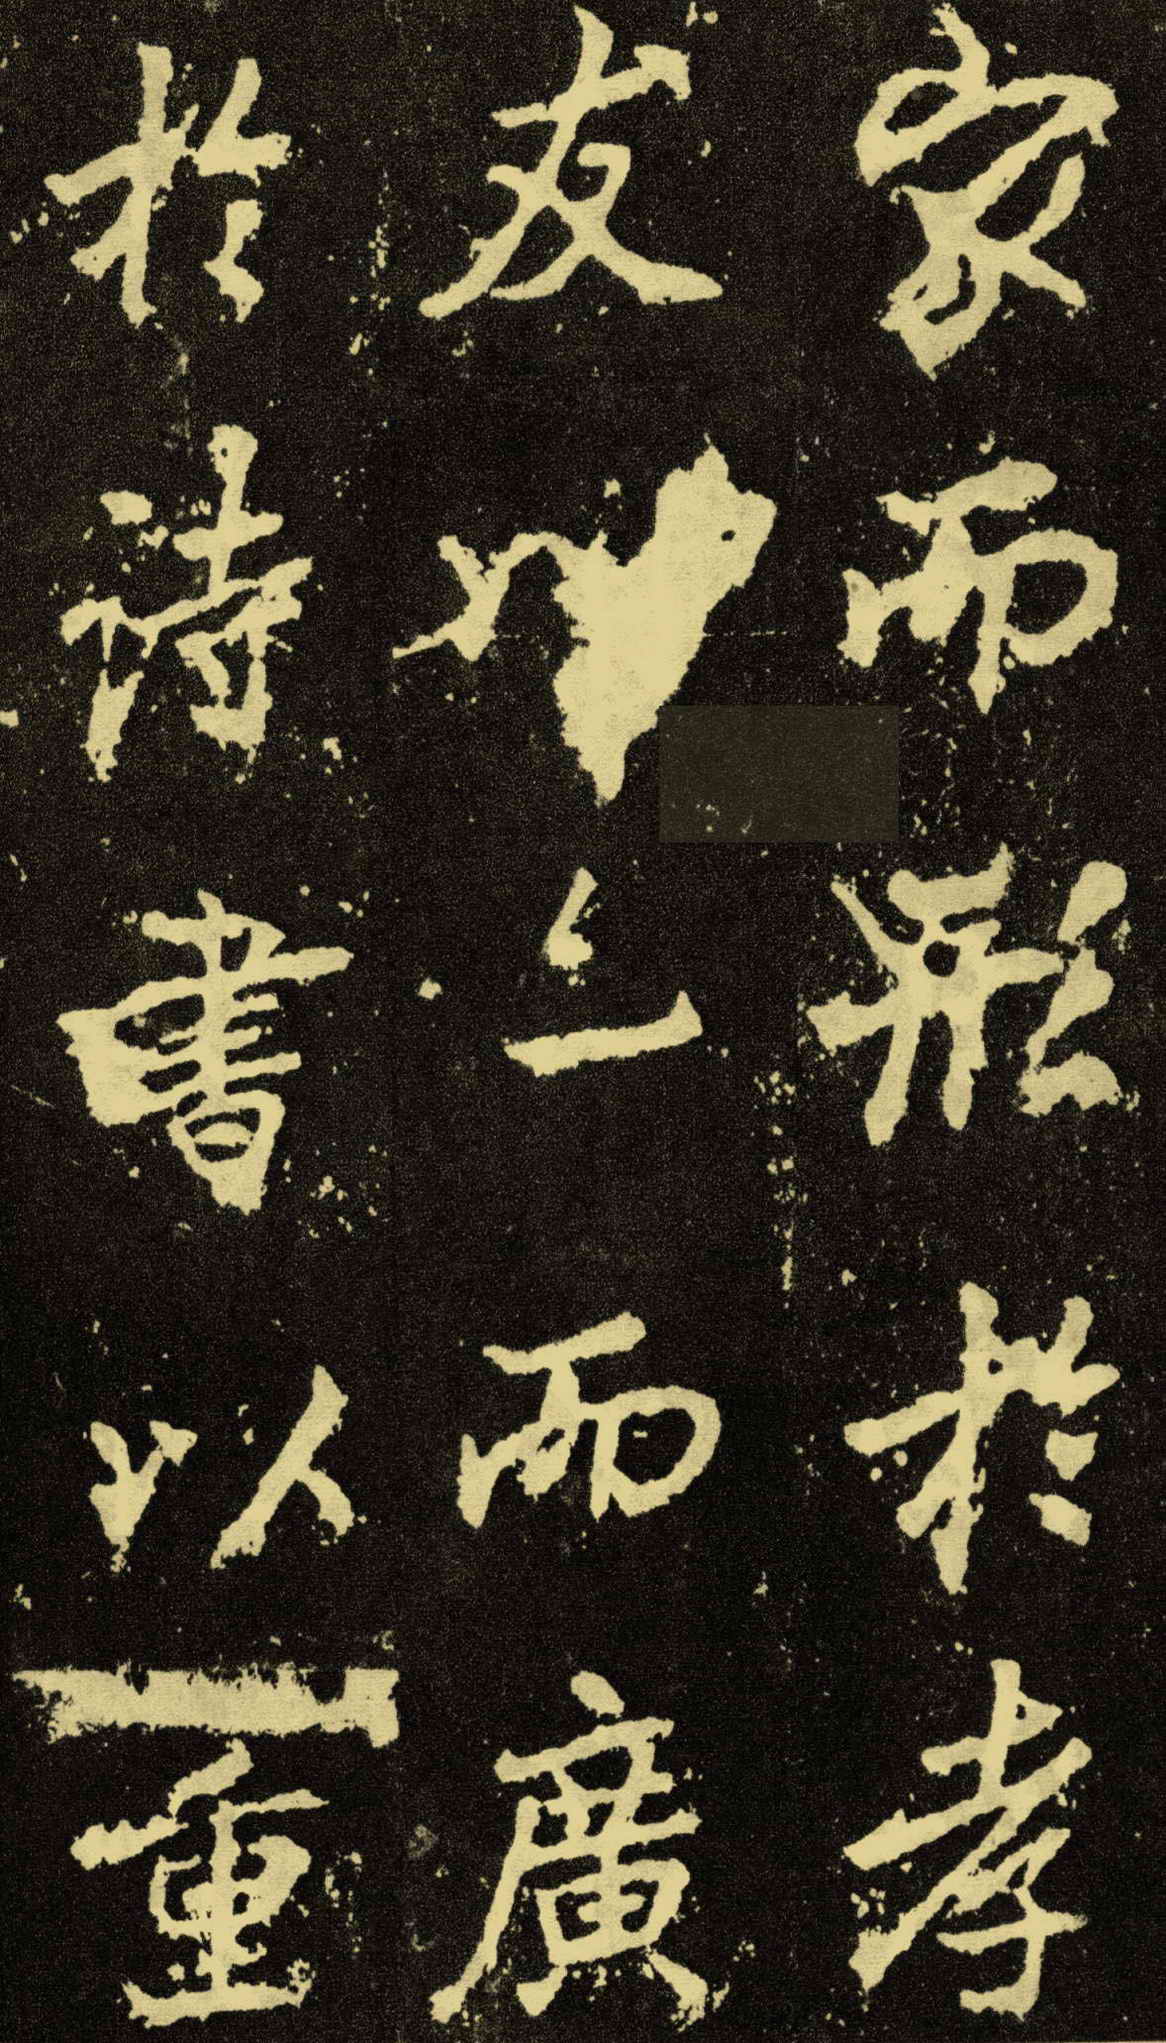 家而形於孝
友而廣
於詩書以重